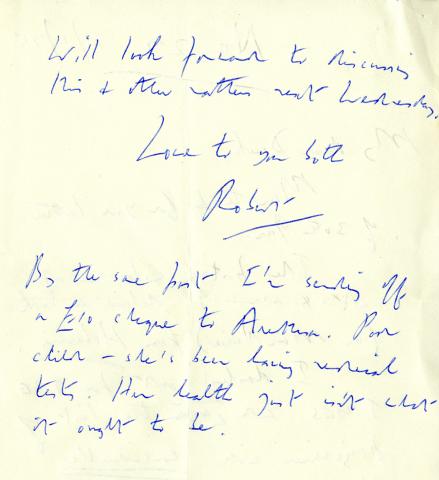 Will look forward to discussing
this & other matters next Wednesday.
Love to you both
Robert
By the same post I'm sending off
a £10 cheque to Arethusa. Poor
child – she's been having medical
tests. Her health just isn't what
it ought to be.